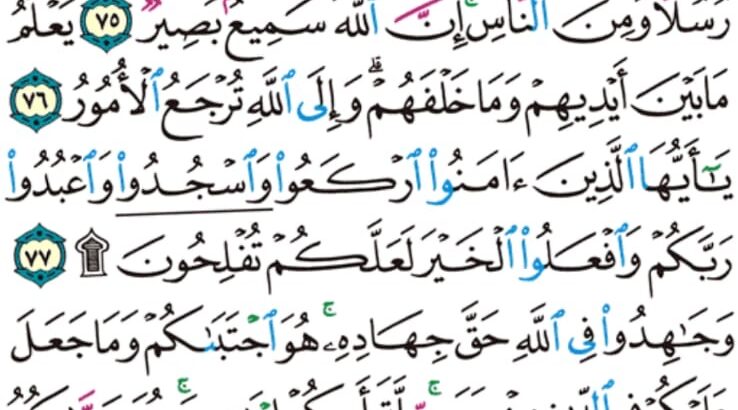 رُسُلًا وَمِنَ ٱلنَّاسِۚ إِنَّ ٱللَّهَ سَمِيعٌۢ بَصِيرٌ ٧٥ يَعْلَمُ
مَا بَيْنَ أَيْدِيهِمْ وَمَا خَلْفَهُمْۗ وَإِلَى ٱللَّهِ تُرْجَعُ ٱلْأُمُورُ ٧٦
يَٰٓأَيُّهَا ٱلَّذِينَ ءَامَنُوا۟ ٱرْكَعُوا۟ وَٱسْجُدُوا۟ وَٱعْبُدُوا۟
رَبَّكُمْ وَٱفْعَلُوا۟ ٱلْخَيْرَ لَعَلَّكُمْ تُفْلِحُونَ ۩ ٧٧
وَجَٰهِدُوا۟ فِى ٱللَّهِ حَقَّ جِهَادِهِۦۚ هُوَ ٱجْتَبَىٰكُمْ وَمَا جَعَلَ